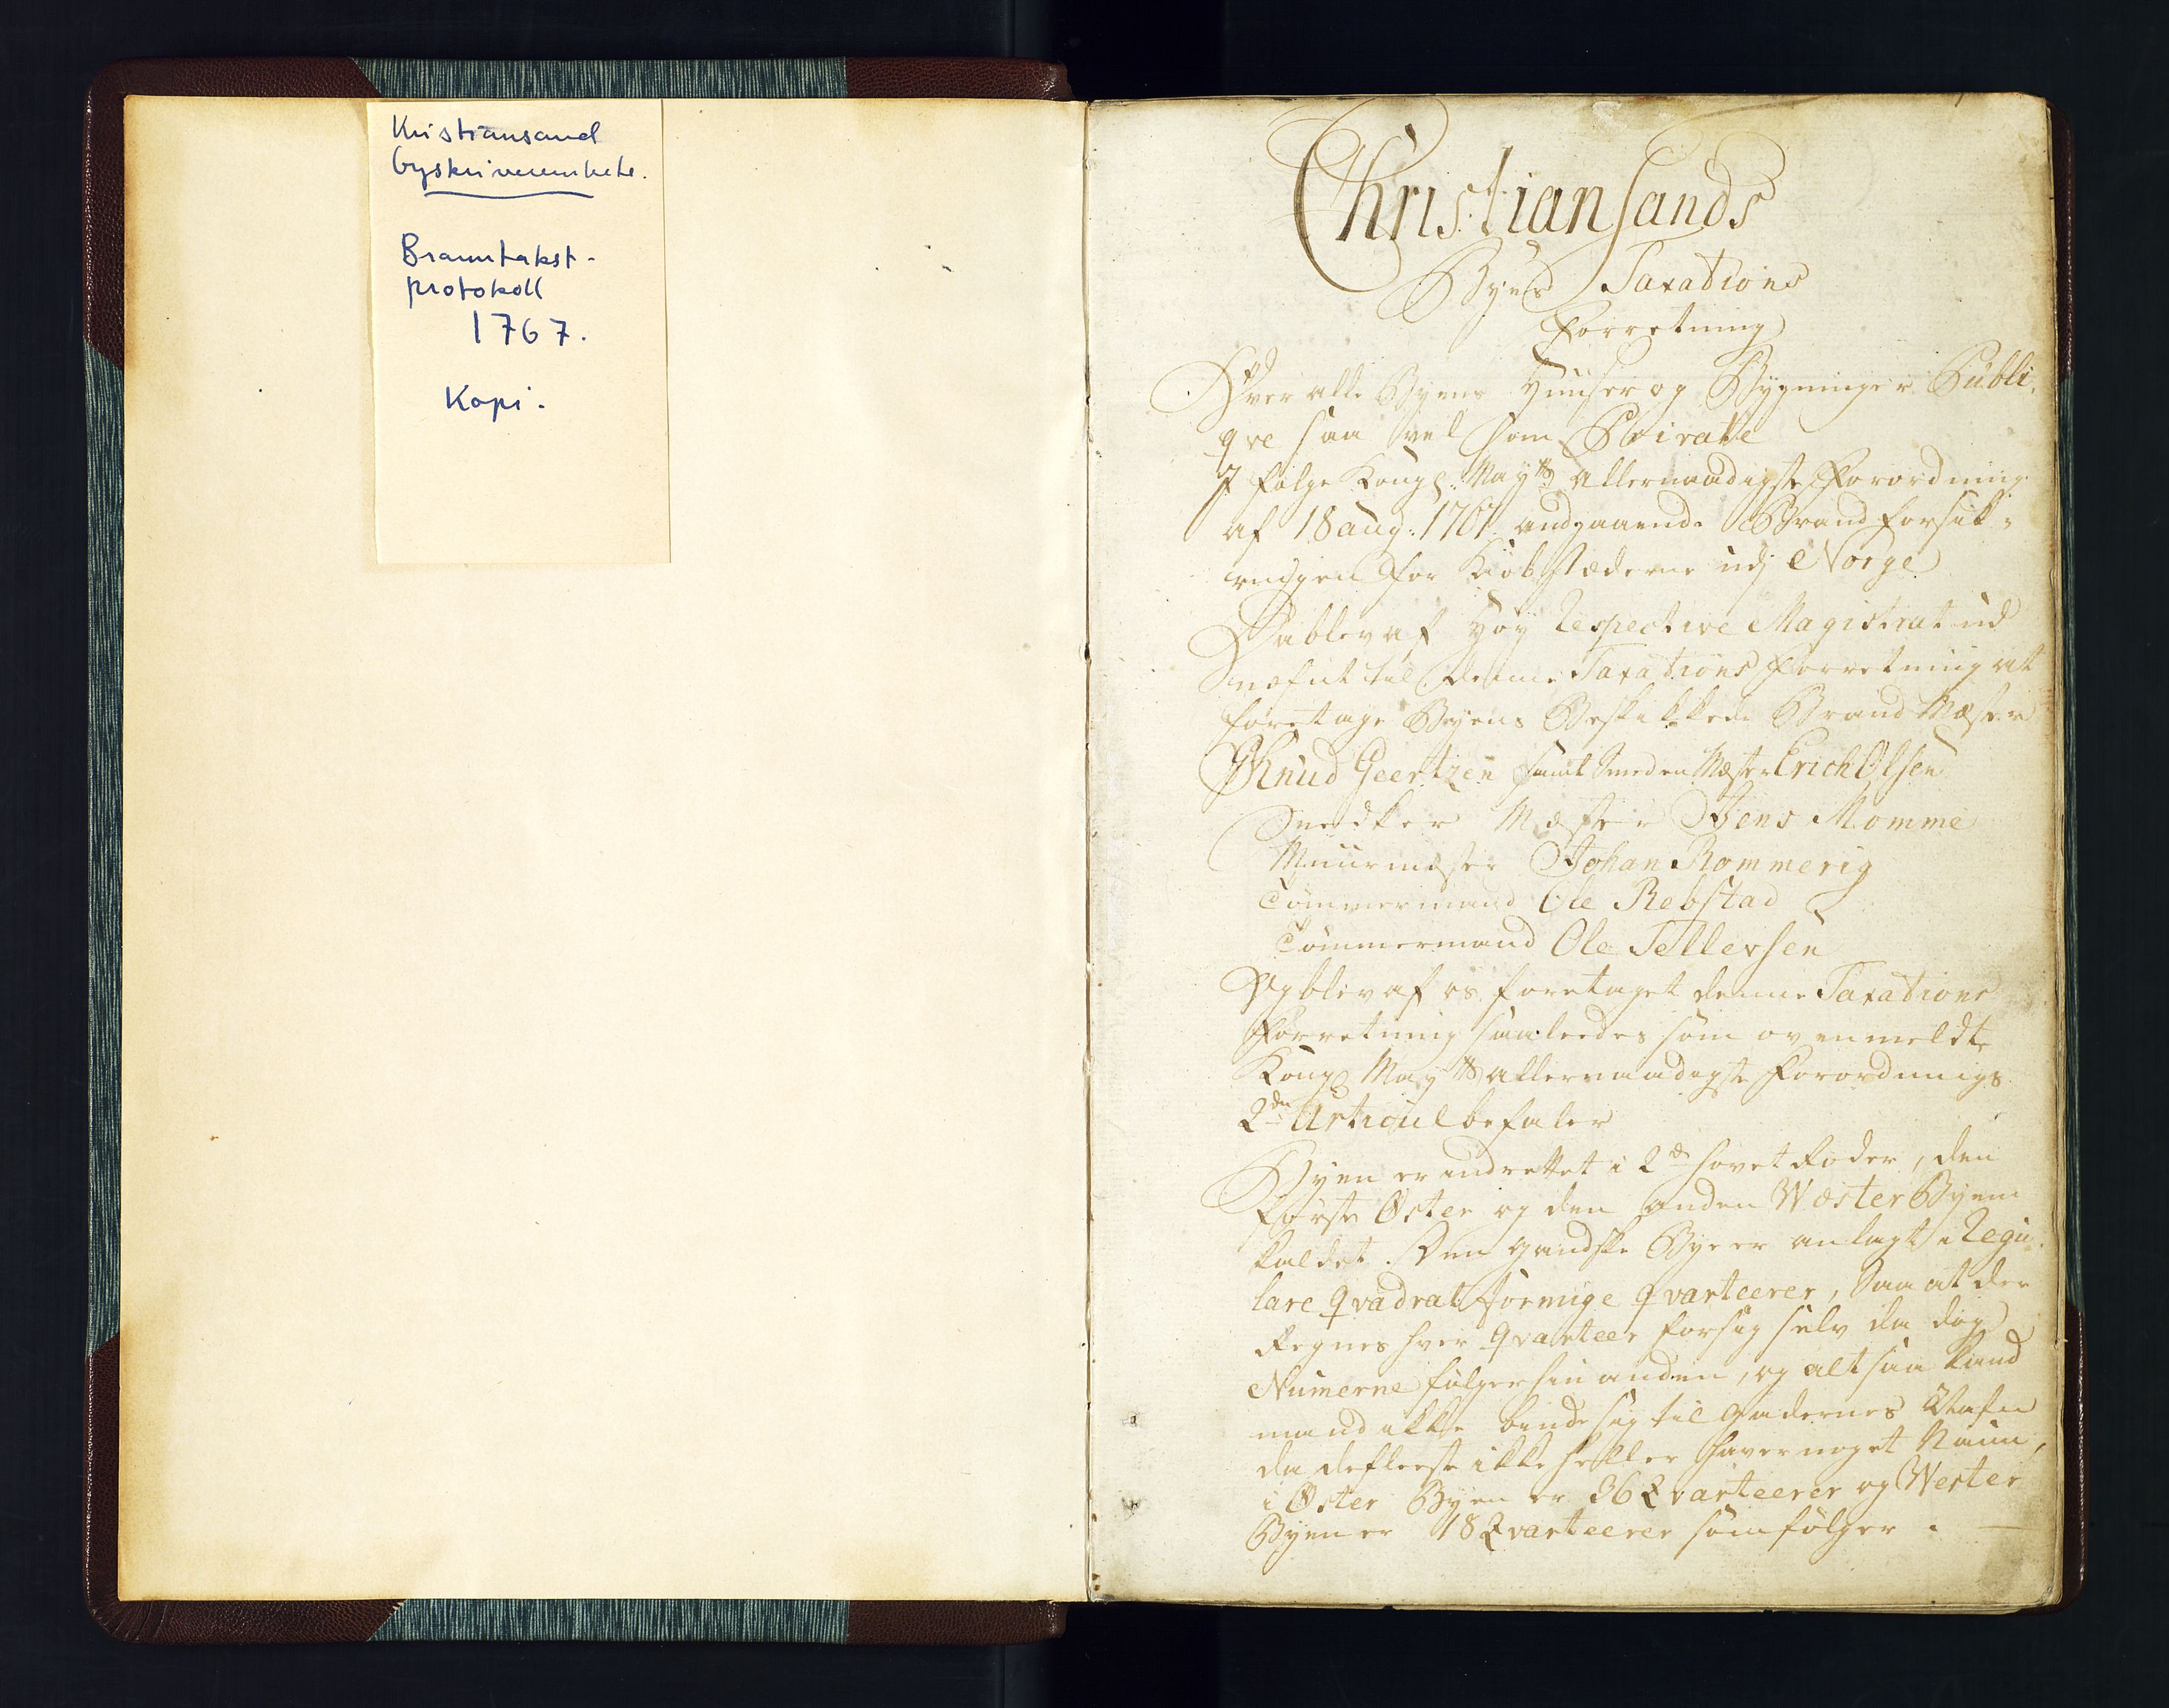 Kristiansand
byskriverembete.
Branntakst-
protokoll
1767.
Kopi.
Christiansands
Byes Taxations
Forretning
Over alle Byens Huuser og Bygninger Publi-
qve saa vel som Private
J følge Kongl: Mayts Allernaadigste Forordning
af 18 aug: 1767 andgaaende Brand forsik-
ringen for Kiøbstæderne udj Norge
Da blev af høy Respective Magistrat ud
næfnt til denne Taxations Forretning at
foretage Byens Beskikkede Brand Mæster
Knud Geertzen samt Smeden Mæster Erich Olsen
Snedker Mæster Jens Momme
Muurmester Johan Rommerig
Tømmermand Ole Rebstad
Tømmermand Ole Tellersen
Og blev af os foretaget denne Taxations
Forretning saaleedes som ovenmeldte
Kongl Mayts Allernaadigste Forordnings
2den Articul befaler
Byen er indrettet i 2de hovet Roder, den
første Øster og den anden Wester Byen
kaldet. Den gandske Bye er anlagt i Regu-
lare Qvadrat formige qvarteerer, Saa at der
Regnes hver qvarteer for sig selv da dog
Numerne følger hin anden, og altsaa kand
mand ikke binde sig til Gadernes
da de fleeste ikke heller haver noget Naun,
i Øster Byen er 36 Qvarteerer og Wester
Byen er 18 Qvarteerer som følger. —